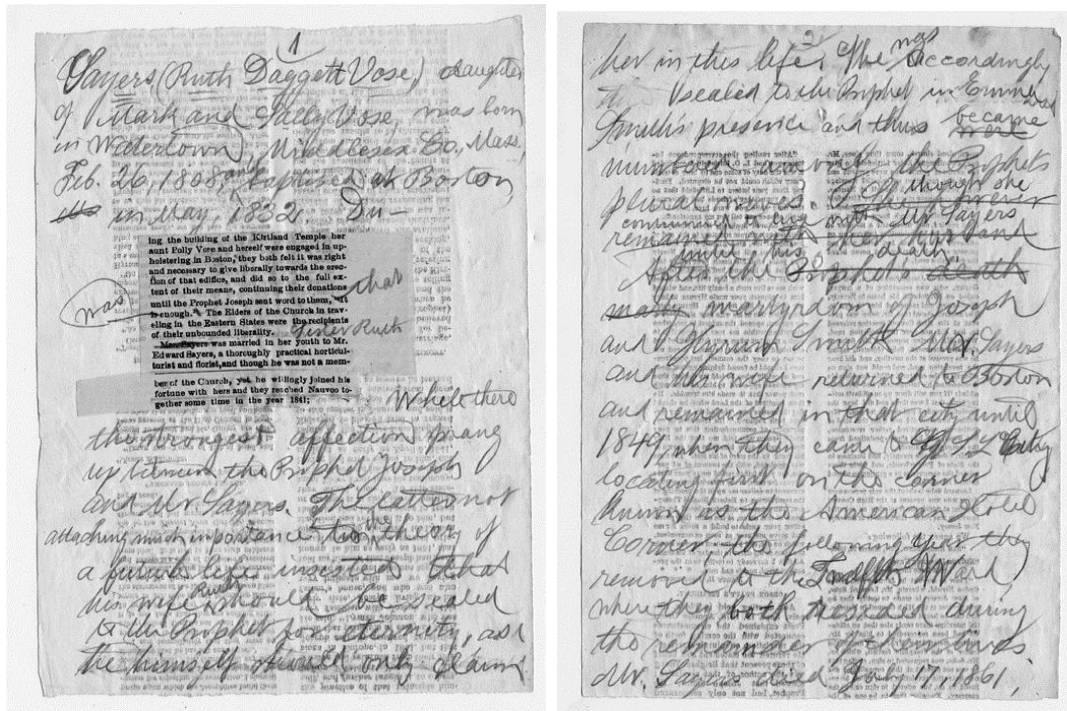 1
Sayers (Ruth Daggett Vose,) daughter
of Mark and Sally Vose, was born
in Watertown, Middlesex Co, Mass,
Feb. 26, 1808, and baptized at Boston
in May, 1832. Du-
ing the building of the Kirtland Temple her
aunt Polly Vose and herself were engaged in up-
holstering in Boston, they both felt it was right
and necessary to give liberally towards the erec-
tion of that edifice, and did so to the full ex-
tent of their means, continuing their donations
until the Prophet Joseph sent word to them, "it that
was is enough." The Elders of the Church in trav-
eling in the Eastern States were the recipients
of their unbounded liberality. Sister Ruth
Mrs. Sayers was married in her youth to Mr.
Edward Sayers, a thoroughly practical horticul-
turist and florist, and though he was not a mem-
ber of the Church, yet he willingly joined his
fortune with hers and they reached Nauvoo to-
gether some time in the year 1841;
While there
the strongest affection sprang
up between the Prophet Joseph
and Mr. Sayers. The latter not
attaching much importance to the theory of
a future life insisted that
his wife Ruth should be sealed
to the Prophet for eternity, as
he himself should only claim
2
her in this life. She was accordingly
sealed to the Prophet in Emma
Smith's presence and thus became were
numbered amongst the Prophets
plural wives. She however though she
continued to live with Mr. Sayers
remained with her husband
until his death.
After the Prophet's death
martyrdom of Joseph
and Hyrum Smith Mr. Sayers
and his wife returned to Boston
and remained in that city until
1849, when they came to G. S. L. City
locating first on the corner
known as the American Hotel
Corner, the following year they
removed to the Twelfth Ward
where they both resided during
the remainder of their lives.
Mr. Sayers died July 17, 1861,